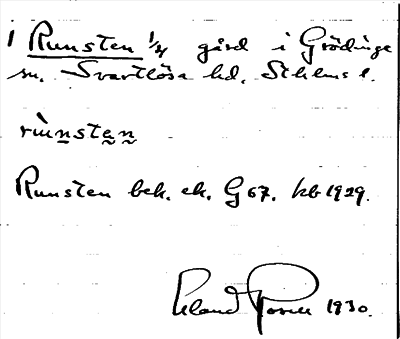 1 Runsten 1/4 gård i Grödinge
sn. Svartlösa hd. Sthlms l.
rùnsten
Runsten bek. ek. G 67. kb 1929.
Roland 1930.